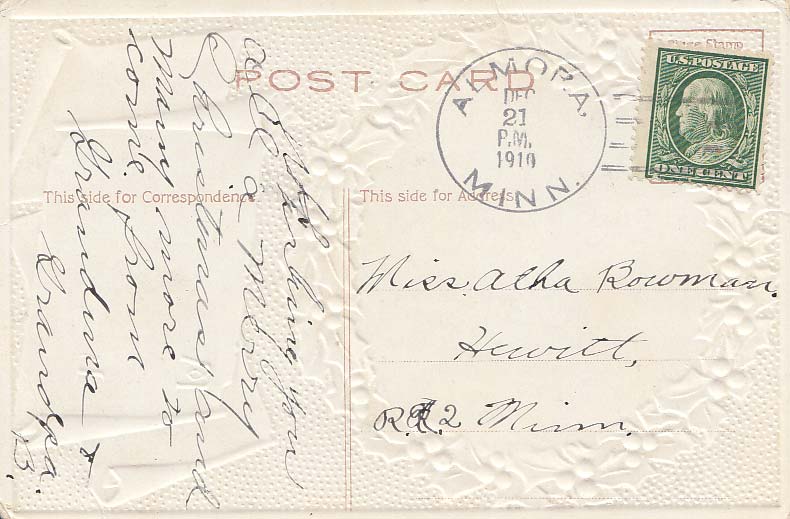 POST CARD
Place Stamp
U.S. POSTAGE
ONE CENT
ALMORA,
DEC
21
P.M.
1910
MINN.
This side for Correspondence.
This side for Address.
wishing you
a Merry
Christmas and
Many more to
come from
Grandma &
Grandpa.
B.
Miss. Alha Bowman.
Hewitt,
R.R. 2 Minn.